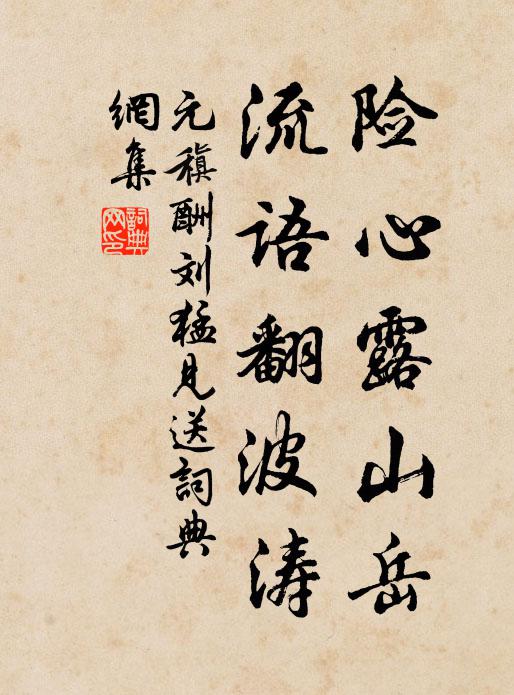 险心露山岳
流语翻波涛
元稹酬刘猛见送詞典
網集
詞典
网印